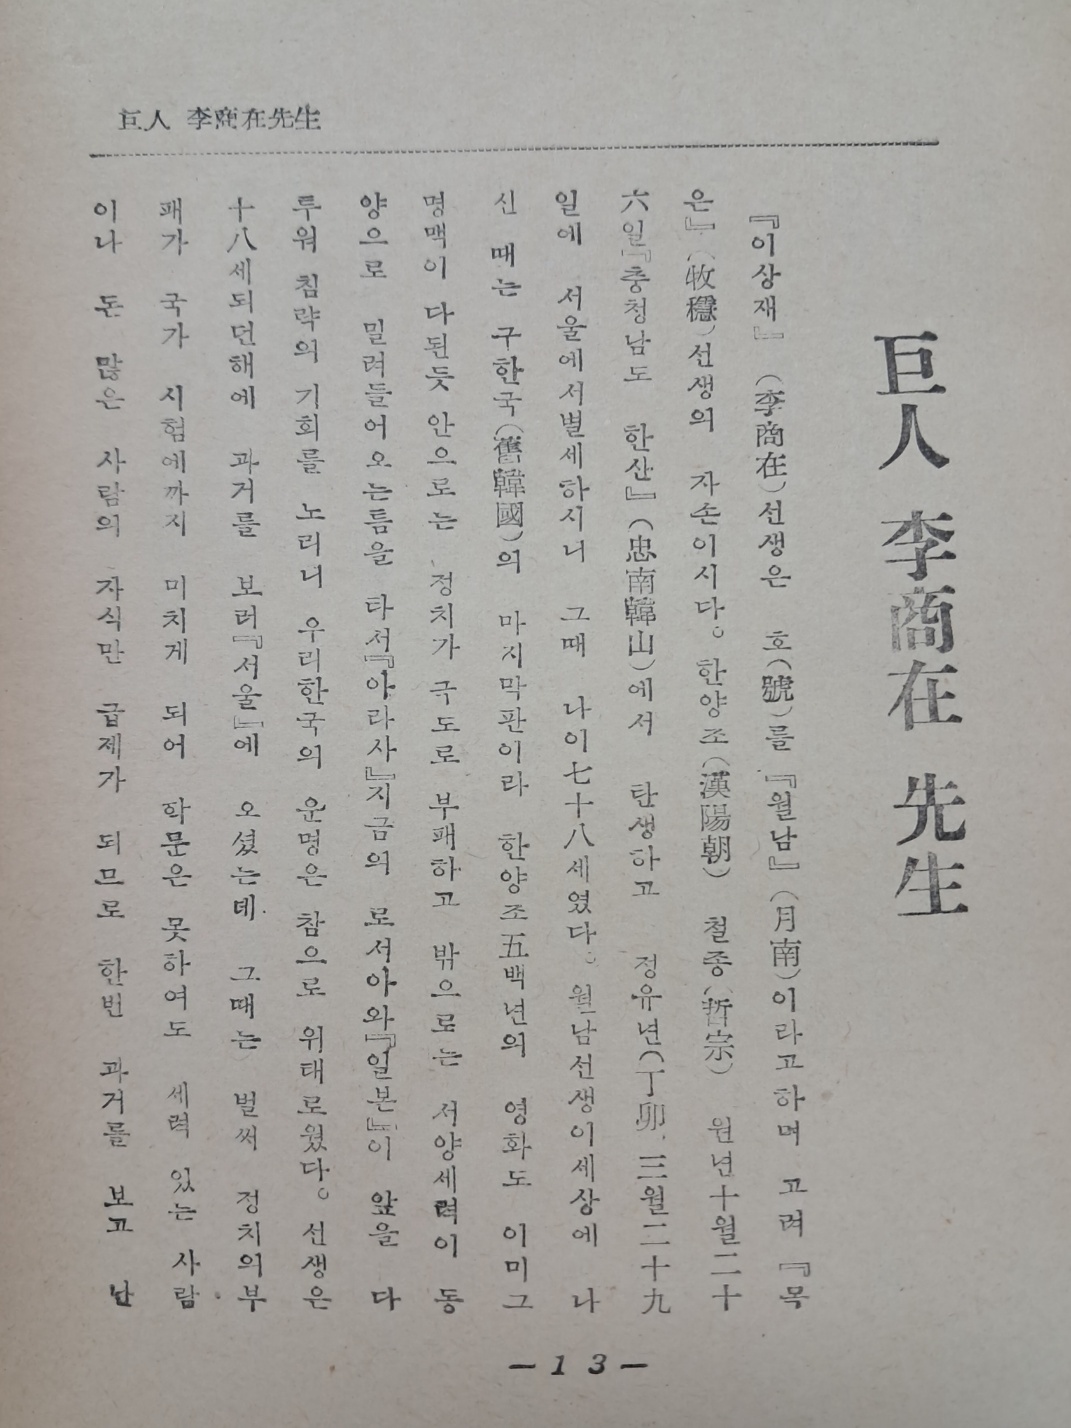 巨人 李商在先生
巨人 李商在 先生
『이상재』 (李商在)선생은 호(號)를 『월남』 (月南)이라고하며 고려 『목
은』 (牧穩)선생의 자손이시다。 한양조(漢陽朝) 철종(哲宗) 원년十월二十
六일『충청남도 한산』 (忠南韓山)에서 탄생하고 정유년(丁卯 三월二十九
일에 서울에서별세하시니 그때 나이七十八세였다。 월남선생이세상에 나
신 때는 구한국(舊韓國)의 마지막판이라 한양조五백년의 영화도 이미그
명맥이 다된듯 안으로는 정치가 극도로 부패하고 밖으로는 서양세력이 동
양으로 밀려들어오는틈을 타서『아라사』지금의 로서아와『일본』이 앞을 다
투워 침략의 기회를 노리니 우리한국의 운명은 참으로 위태로웠다。 선생은
十八세되던해에 과거를 보러『서울』에 오셨는데 그때는 벌써 정치의부
패가 국가 시험에까지 미치게 되어 학문은 못하여도 세력 있는 사람
이나 돈 많은 사람의 자식만 급제가 되므로 한번 과거를 보고 난
—13—